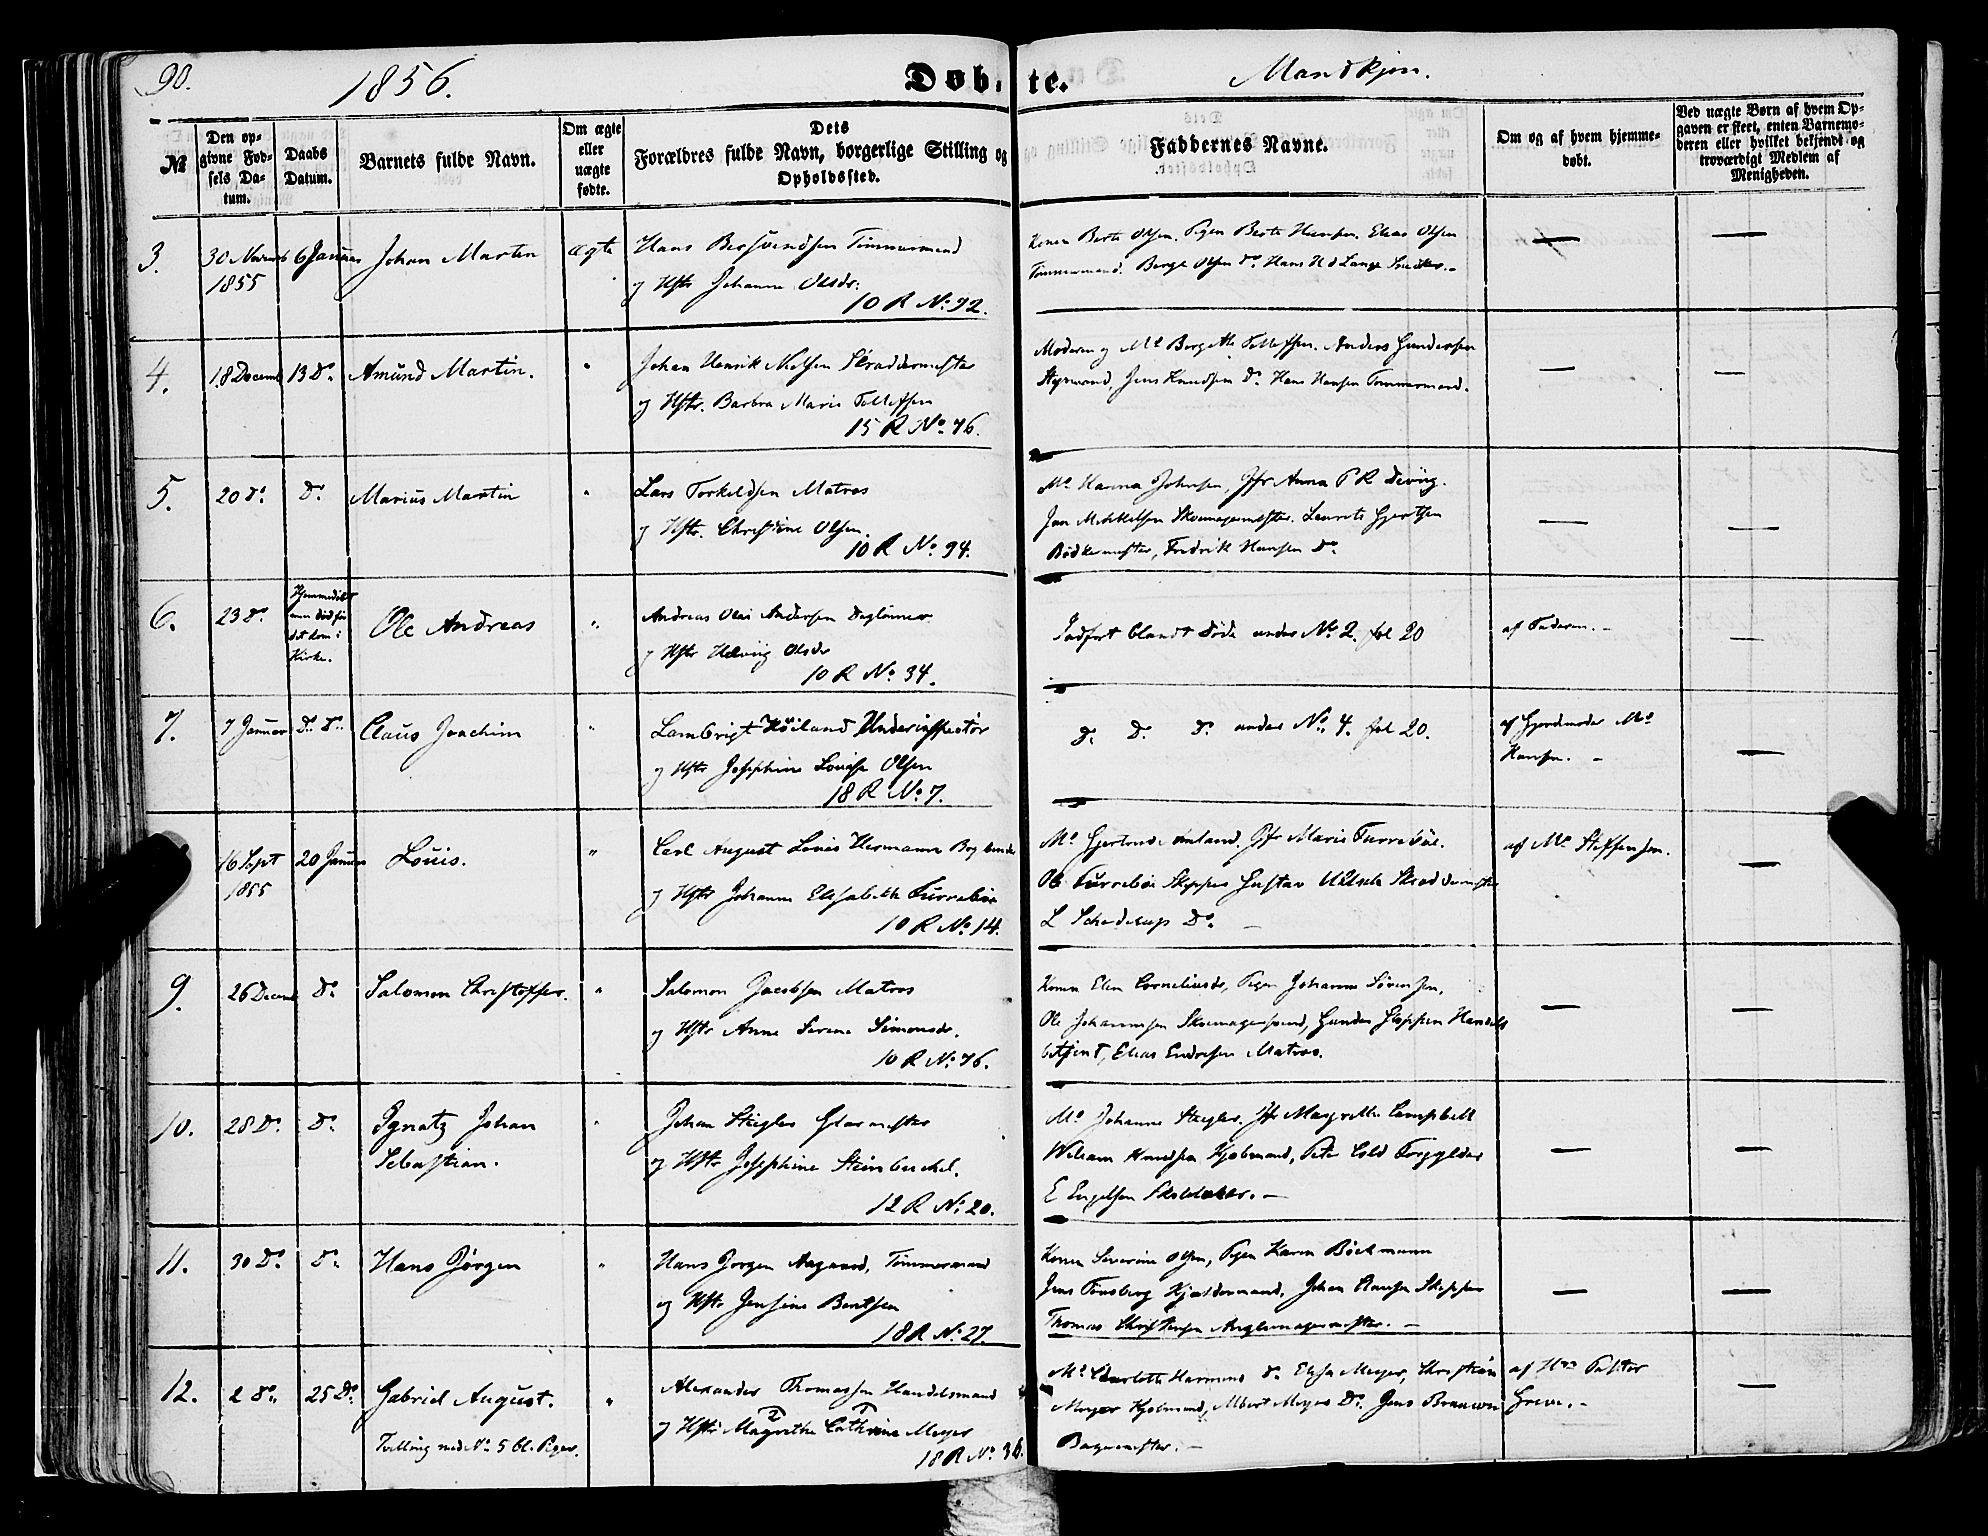 90.
1856.
Døbte.
Mandkjøn.
№
Den opgivne Fødsels Datum.
Daabs Datum.
Barnets fulde Navn.
Om ægte eller uægte fødte.
Dets Forældres fulde Navn, borgerlige Stilling og Opholdssted.
Faddernes Navne.
Om og af hvem hjemmedøbt.
Ved uægte Børn af hvem Opgaven er skeet, enten Barnemoderen eller hvilket bekjendt og troværdigt Medlem af Menigheden.
3.
30 Novemb 1855
6 Januar
Johan Martin
ægte
Hans Tømmermand
og Hstr Johanne Olsdr:
10 R No: 92.
Konen Berte Olsen. Pigen Berte Hansen. Elias Olsen
Tømmermand. Berge Olsen Do. Hans H d Lange Snedker.-
—
—
4.
18 Decemb
13 Do.
Amund Martin.
"
Johan Henrik Nielsen Skraddermester
og Hstr. Barbra Marie Tellefsen
15 R No. 76.
Moderen og Me Borgethe Tellefsen. Anders Gundersen
Styrmand, Jens Knudsen Do. Hans Hansen Tømmermand.
—
—
5.
20 Do.
Do.
Marius Martin
"
Lars Torkeldsen Matros
og Hstr. Christine Olsen.
10 R No. 94.
Me Hanna Johnsen, Jfr Anna P R
Jan Mikkelsen Skomagermester. Laurits Gjertsen
Bødkermester, Fredrik Hansen Do
—
—
6.
23 Do.
Hjemmedøbt
men død før
det kom i
Kirke.
Ole Andreas
"
Andreas Olai Andersen Daglønner
og Hstr Helvig Olsdr
10 R No. 34.
Indført blandt Døde under No. 2. fol 20
af Faderen. -
—
7.
7 Januar
Do. Do.
Claus Joachim
"
Lambrigt Høiland Underinspectør
og Hstr Josephine Lovise Olsen
18 R No. 7.
Do. Do. Do. under No. 4. fol 20.
af Gjordmoder Me
Hansen. -
—
16 Sept
1855
20 Januar
Louis.
"
Carl August Louis Hermann
og Hstr Johanne Elisabeth Furrebøe
10 R No. 14.
Me Gjertrude Omland. Jfr Marie Furrebøe.
Ole Furrebøe Skipper Gustav Skraddermester
L Do. -
af Me Steffensen.
—
9.
26 Decemb
Do.
Salomon Christopher.
"
Salomon Jacobsen Matros
og Hstr Anne Serene Simonsdr.
10 R No. 76.
Konen Elen Corneliusdr, Pigen Johanne Sørensen,
Ole Johannesen Skomagersvend, Gunder Jeppsen Handels
betjent, Elias Endresen Matros.
—
—
10.
28 Do.
Do.
Ignatz Johan
Sebastian.
"
Johan Stiegler Glasmester
og Hstr Josephine
12 R No. 20.
Me Johanne Stiegler. Jfr Margrethe Campbell
William Knudsen Kjøbmand, Peter Cold Forgylder
E Engelsen -
—
—
11.
30 Do.
Do.
Hans Jørgen
"
Hans Jørgen Aagaard, Tømmermand
og Hstr Jensine Bentsen
18 R No. 27.
Konen Severine Olsen, Pigen Karen Bøckmann
Jens Tønsberg Kjældermand, Johan Hansen Skipper
Thomas Christensen -
—
—
12.
2 Do.
25 Do.
Gabriel August.
Tvilling med No. 5 bl. Piger.
"
Alexander Thomassen Handelsmand
og Hstr Magrethe Cathrine Meyer
18 R No. 36.
Me Charlotte Do. Elisa Meyer, Christian
Meyer Kjøbmand, Albert Meyer Do. Jens
Bagermester. -
af Hrr Pastor
Greve. -
—